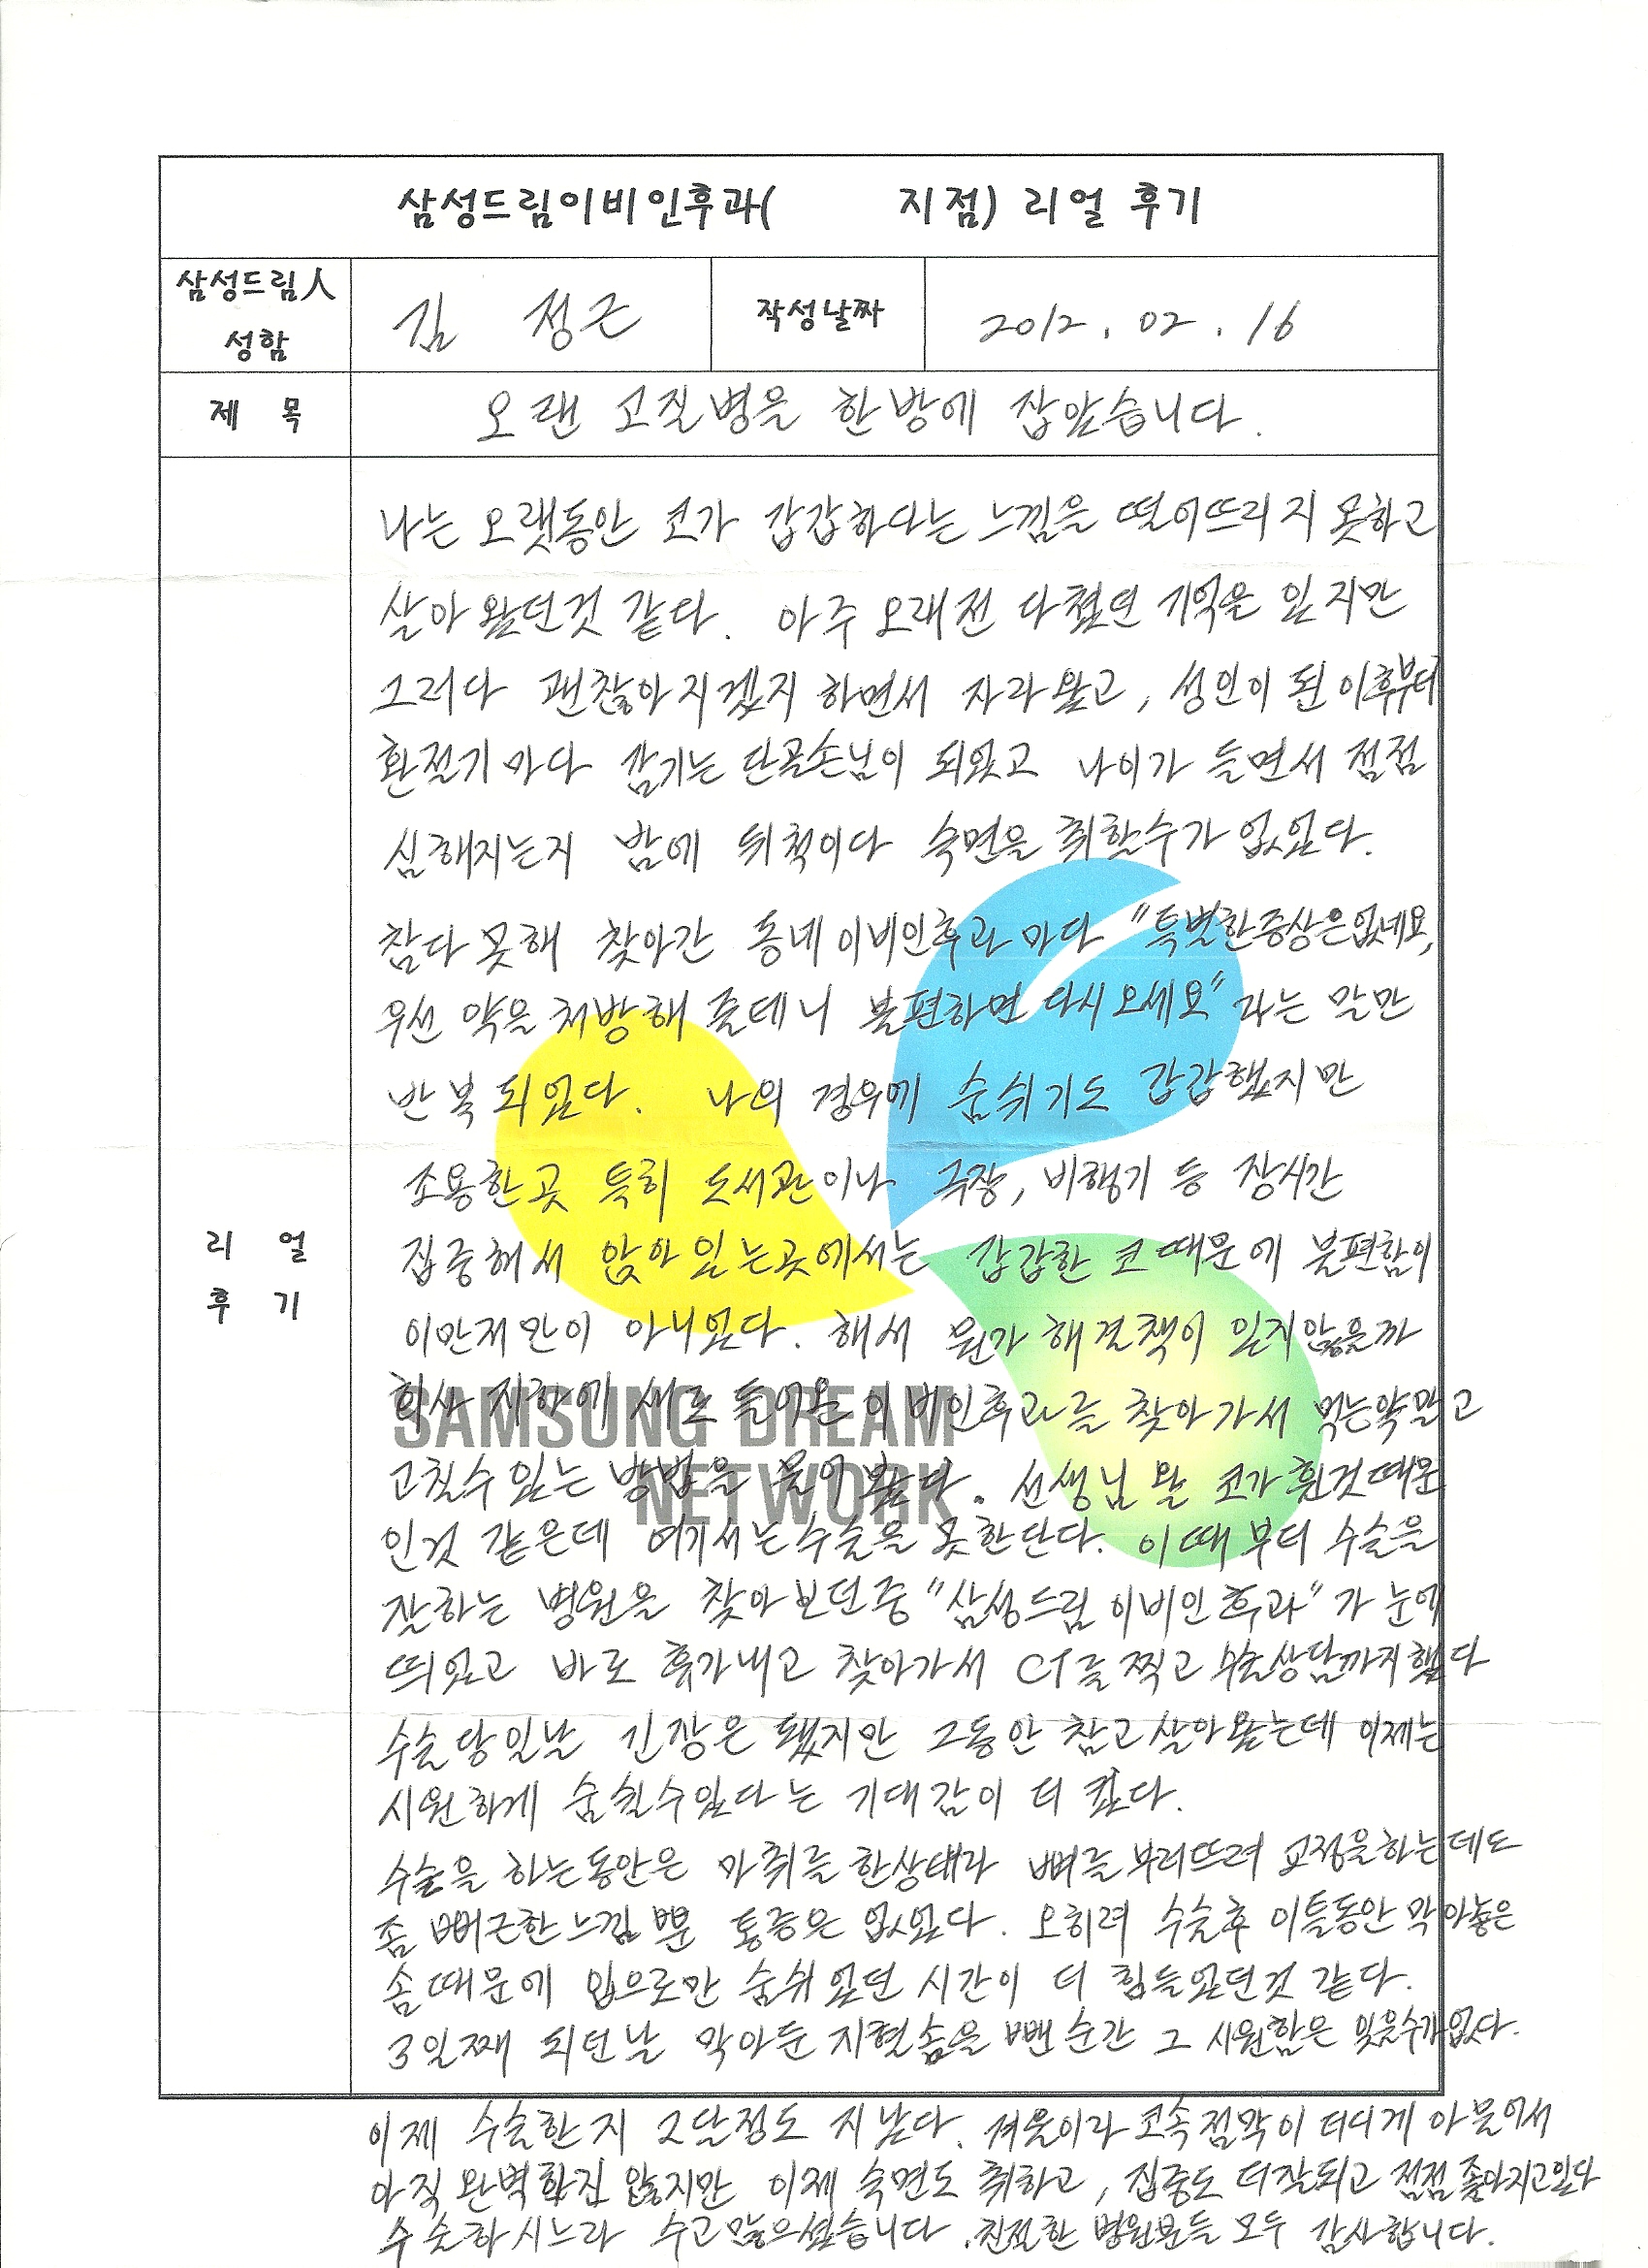 삼성드림이비인후과( 지점) 리얼 후기
삼성드림人
성함
김 정근
작성날짜
2012. 02. 16
제 목
오랜 고질병을 한방에 잡았습니다.
리 얼
후 기
나는 오랫동안 코가 갑갑하다는 느낌을 떨어뜨리지 못하고
살아 왔던것 같다. 아주 오래전 다쳤던 기억은 있지만
그러다 괜찮아지겠지 하면서 자라왔고, 성인이 된 이후부터
환절기 마다 감기는 단골손님이 되었고 나이가 들면서 점점
심해지는지 밤에 뒤척이다 숙면을 취할수가 없었다.
참다 못해 찾아간 동네 이비인후과 마다 "특별한증상은없네요,
우선 약을 처방해 줄테니 불편하면 다시오세요" 라는 말만
반복 되었다. 나의 경우에 숨쉬기도 갑갑했지만
조용한곳 특히 도서관이나 극장, 비행기 등 장시간
집중해서 앉아 있는곳에서는 갑갑한 코 때문에 불편함이
이만저만이 아니었다. 해서 뭔가 해결책이 있지않을까
회사 지하에 새로 들어온 이비인후과를 찾아가서 먹는약말고
고칠수 있는 방법을 물어 봤다. 선생님 왈 코가 휜것때문
인것 같은데 여기서는 수술을 못한단다. 이때 부터 수술을
잘하는 병원을 찾아보던중 "삼성드림 이비인후과"가 눈에
띄었고 바로 휴가내고 찾아가서 CT를 찍고 수술상담까지했다
수술 당일날 긴장은 됐지만 그동안 참고 살아왔는데 이제는
시원하게 숨쉴수있다는 기대감이 더 컸다.
수술을 하는동안은 마취를 한상태라 뼈를 부러뜨려 교정을하는데도
좀 뻐근한느낌 뿐 통증은 없었다. 오히려 수술후 이틀동안 막아놓은
솜때문에 입으로만 숨쉬었던 시간이 더 힘들었던것 같다.
3일째 되던날 막아둔 지혈솜을 뺀 순간 그 시원함은 잊을수가없다.
이제 수술한지 2달정도 지났다. 겨울이라 코속점막이 더디게 아물어서
아직 완벽하진 않지만 이제 숙면도 취하고, 집중도 더잘되고 점점 좋아지고있다
수술하시느라 수고많으셨습니다. 친절한 병원분들 모두 감사합니다.
SAMSUNG DREAM
NETWORK